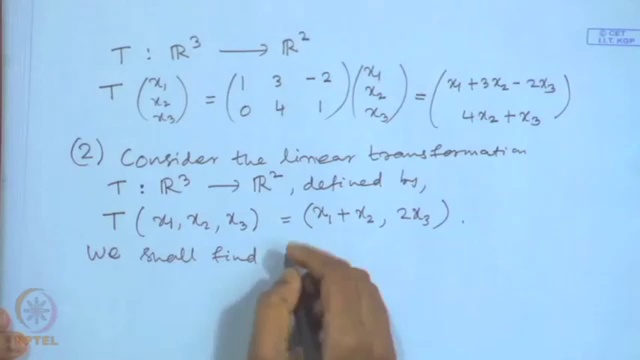 © CET
I.I.T. KGP
T : ℝ³ ⟶ ℝ²
T (x₁ x₂ x₃) = (1 3 -2 0 4 1) (x₁ x₂ x₃) = (x₁ + 3x₂ - 2x₃ 4x₂ + x₃)
(2) Consider the linear transformation
T : ℝ³ ⟶ ℝ², defined by,
T (x₁, x₂, x₃) = (x₁ + x₂, 2x₃).
We shall find
NPTEL